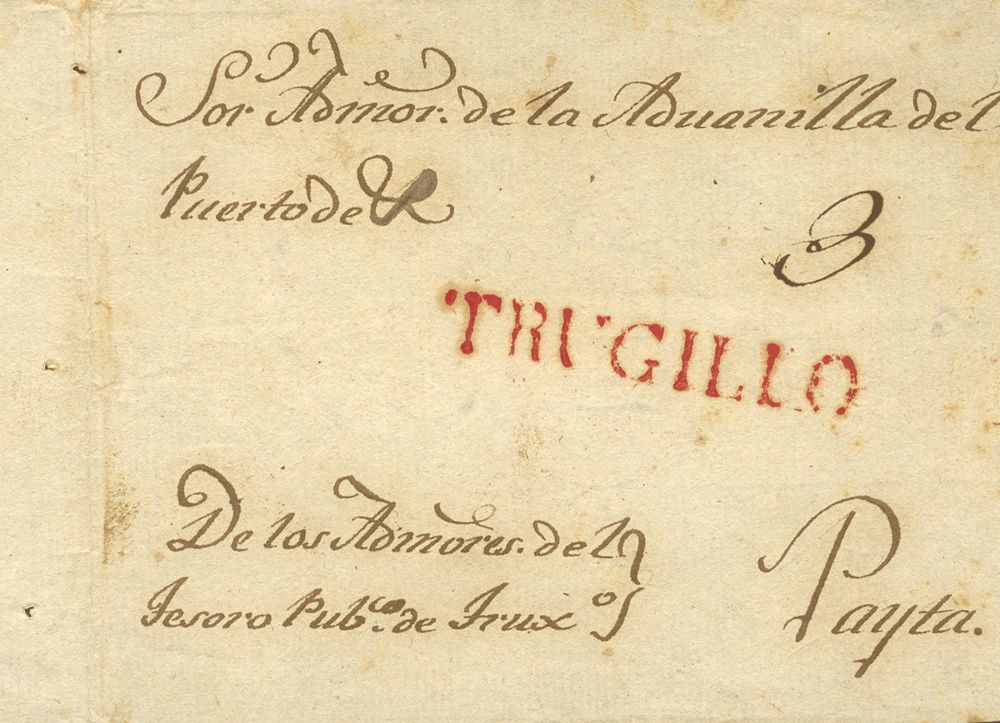 Sor. Admor. de la Aduanilla del
Puerto de
3
TRUGILLO
De los Admores. del
Tesoro Pubco. de Truxo
Payta.